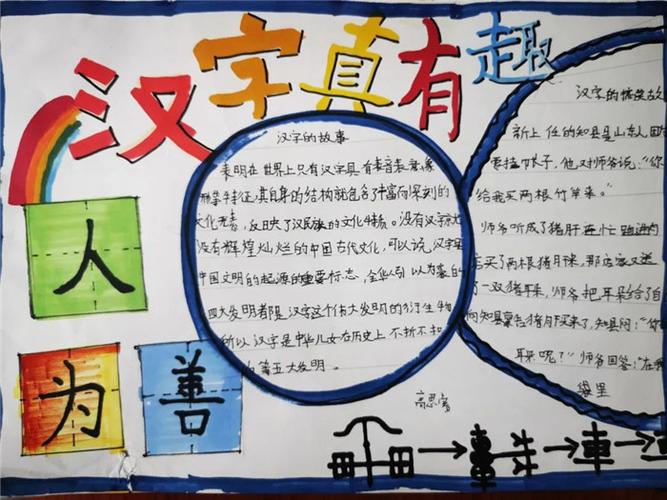 汉字真有趣
人
为善
汉字的故事
表明在世界上只有汉字具有表音表意像
形等特征,其自身的结构就包含了丰富而深刻的
文化 反映了汉民族的文化特质。没有汉字
没有辉煌灿烂的中国古代文化,可以说,汉字是
中国文明的起源的重要标志,
四大发明都是汉字这个伟大发明的衍生物
所以 汉字是中华儿女在历史上 不折不扣
第五大发明。
汉字的搞笑故
新上任的知县是山东人,因
要挂帐子,他对师爷说:“你
给我买两根竹竿来。”
师爷听成了猪肝 连忙跑
店买了两根猪
了一双猪耳朵, 师爷把耳朵给了自
向知县 来了,知县问:“你
耳朵呢?”师爷回答:“在我
袋里
高思
車